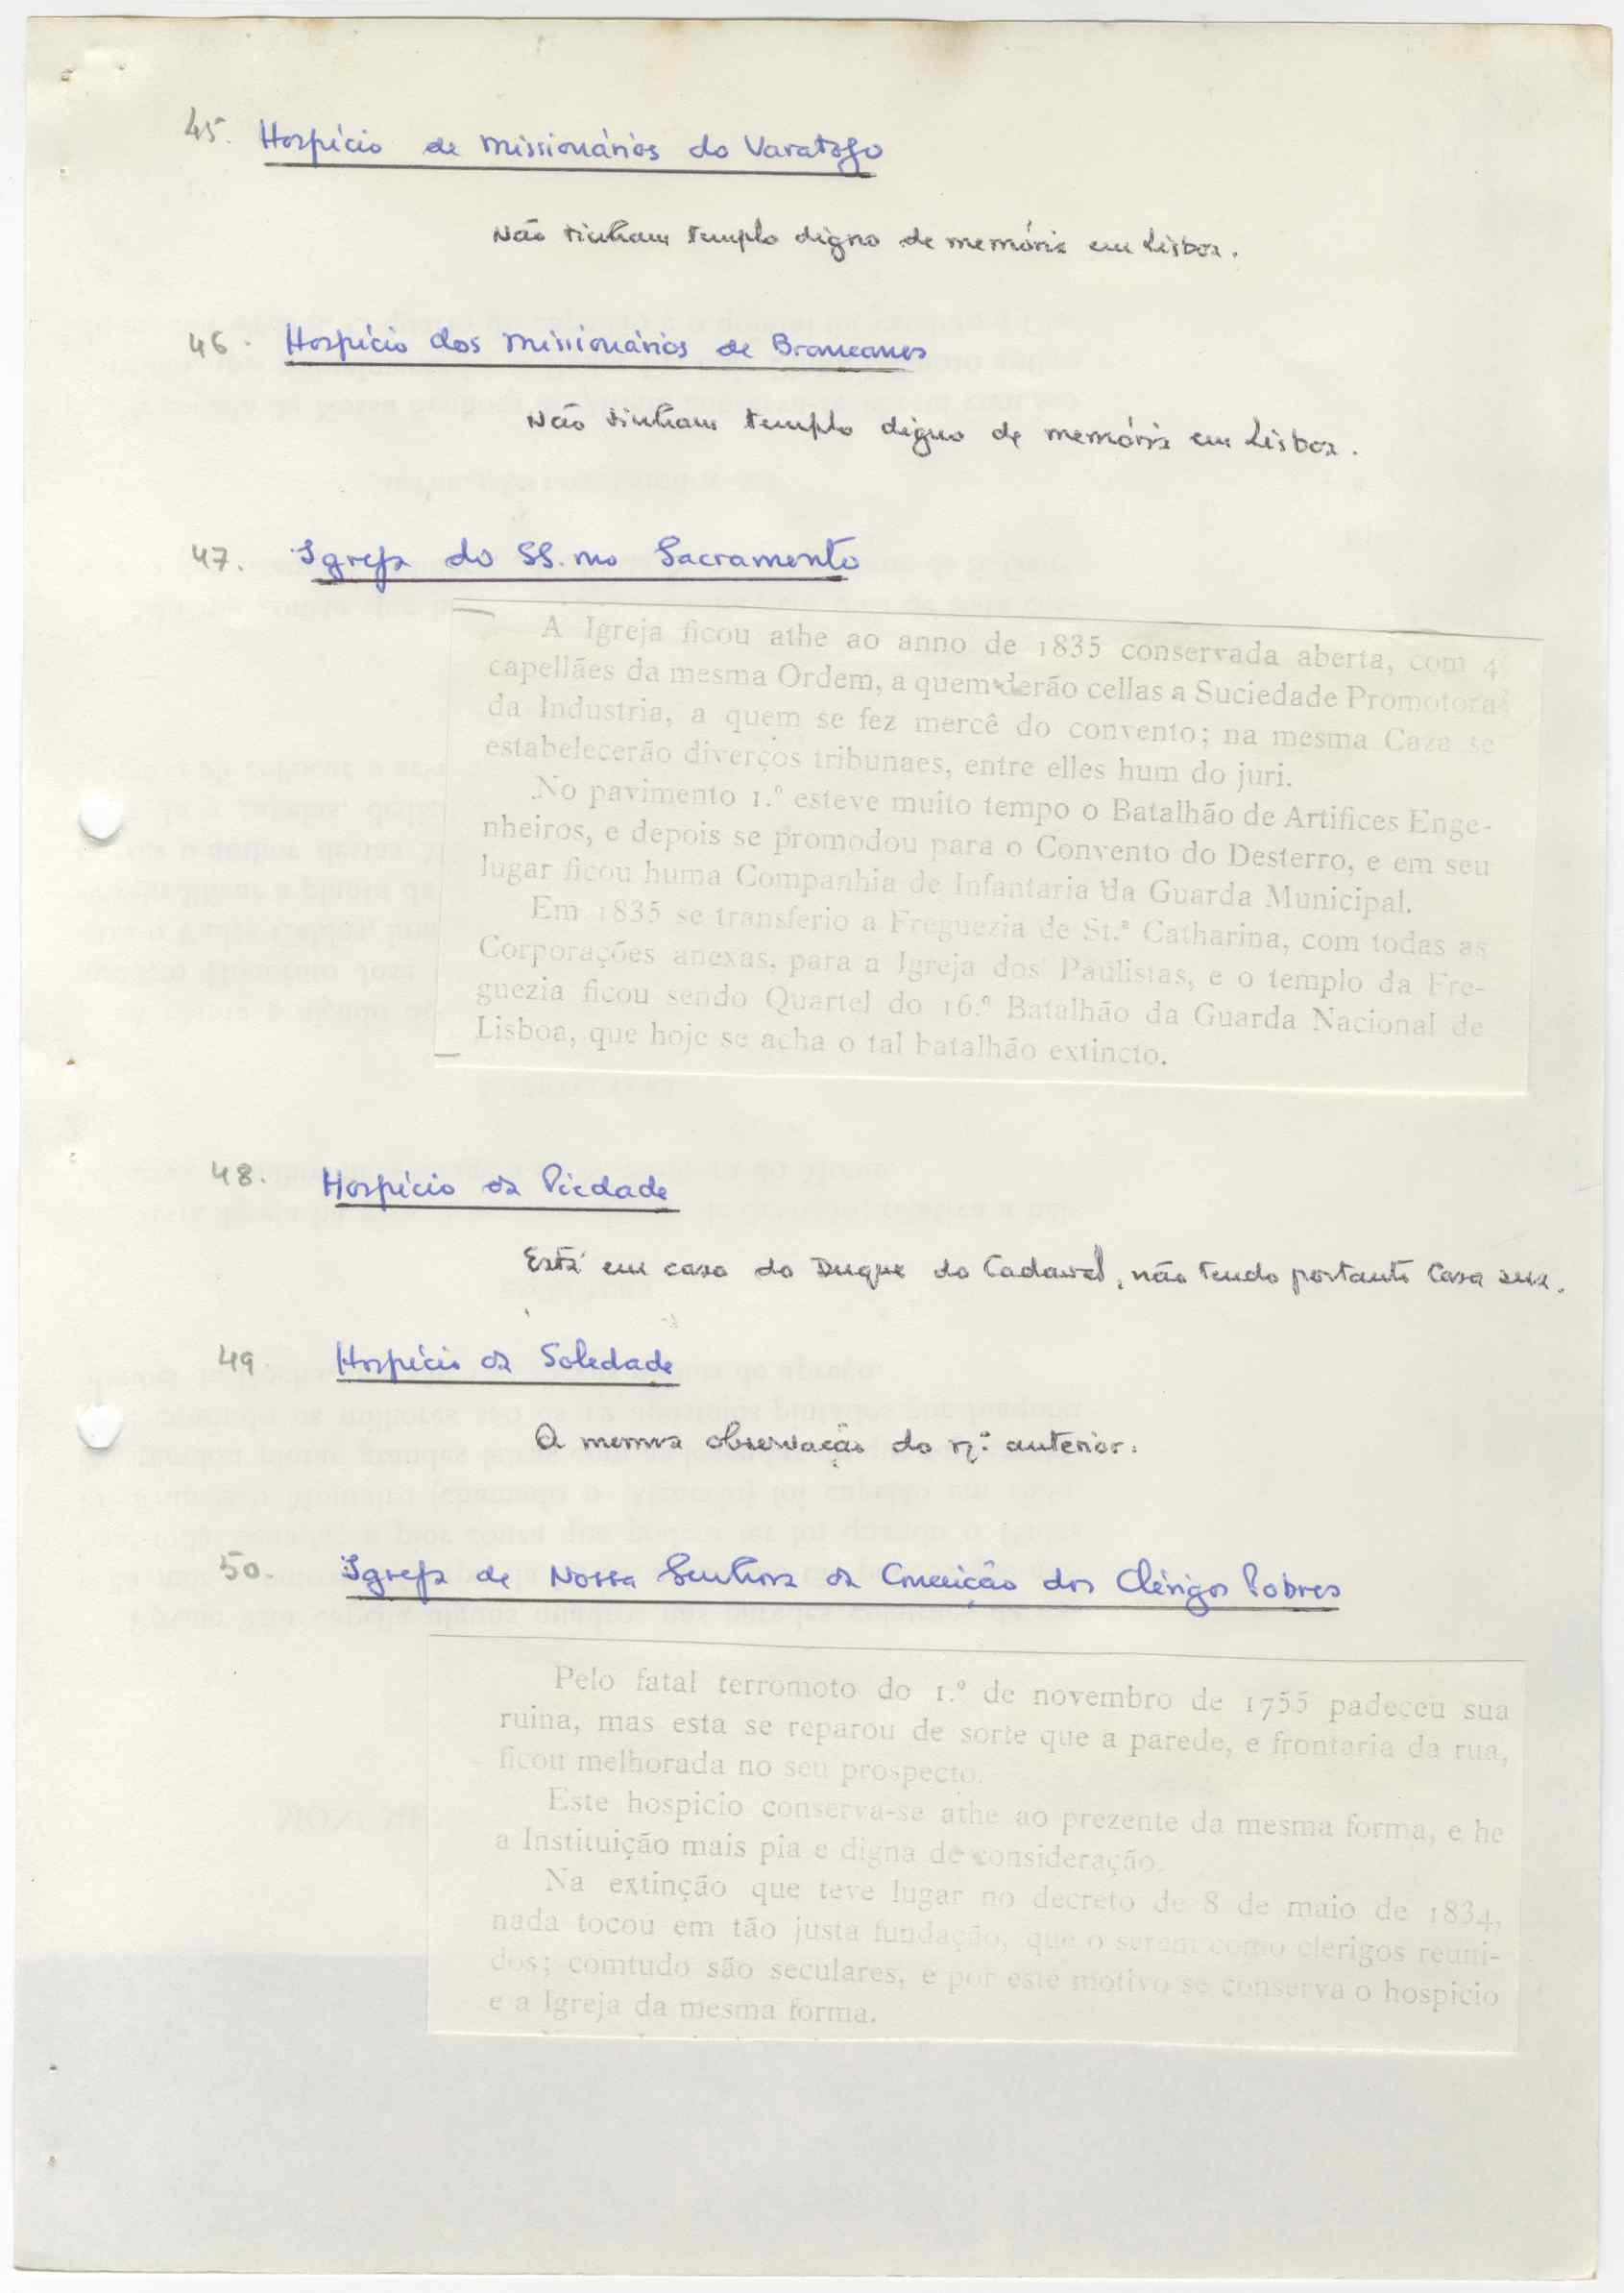 45. Hospício de Missionários do Varatojo
Não tinham templo digno de memória em Lisboa.
46. Hospício dos Missionários de Brancanes
Não tinham templo digno de memória em Lisboa.
47. Igreja do SS.mo Sacramento
A Igreja ficou athe ao anno de 1835 conservada aberta, com 4
capellães da mesma Ordem, a quem derão cellas a Suciedade Promotora
da Industria, a quem se fez mercê do convento; na mesma Caza se
estabelecerão diverços tribunaes, entre elles hum do juri.
No pavimento 1.º esteve muito tempo o Batalhão de Artifices Enge-
nheiros, e depois se promodou para o Convento do Desterro, e em seu
lugar ficou huma Companhia de Infantaria da Guarda Municipal.
Em 1835 se transferio a Freguezia de St.ª Catharina, com todas as
Corporações anexas, para a Igreja dos Paulistas, e o templo da Fre-
guezia ficou sendo Quartel do 16.º Batalhão da Guarda Nacional de
Lisboa, que hoje se acha o tal batalhão extincto.
48. Hospício da Piedade
Está em casa do Duque do Cadaval, não tendo portanto Casa sua.
49. Hospício da Soledade
A mesma observação do n.º anterior.
50. Igreja de Nossa Senhora da Conceição dos Clérigos Pobres
Pelo fatal terromoto do 1.º de novembro de 1755 padeceu sua
ruina, mas esta se reparou de sorte que a parede, e frontaria da rua,
ficou melhorada no seu prospecto.
Este hospicio conserva-se athe ao prezente da mesma forma, e he
a Instituição mais pia e digna de consideração.
Na extinção que teve lugar no decreto de 8 de maio de 1834,
nada tocou em tão justa fundação, que o serem como clerigos reuni-
dos; comtudo são seculares, e por este motivo se conserva o hospicio
e a Igreja da mesma forma.